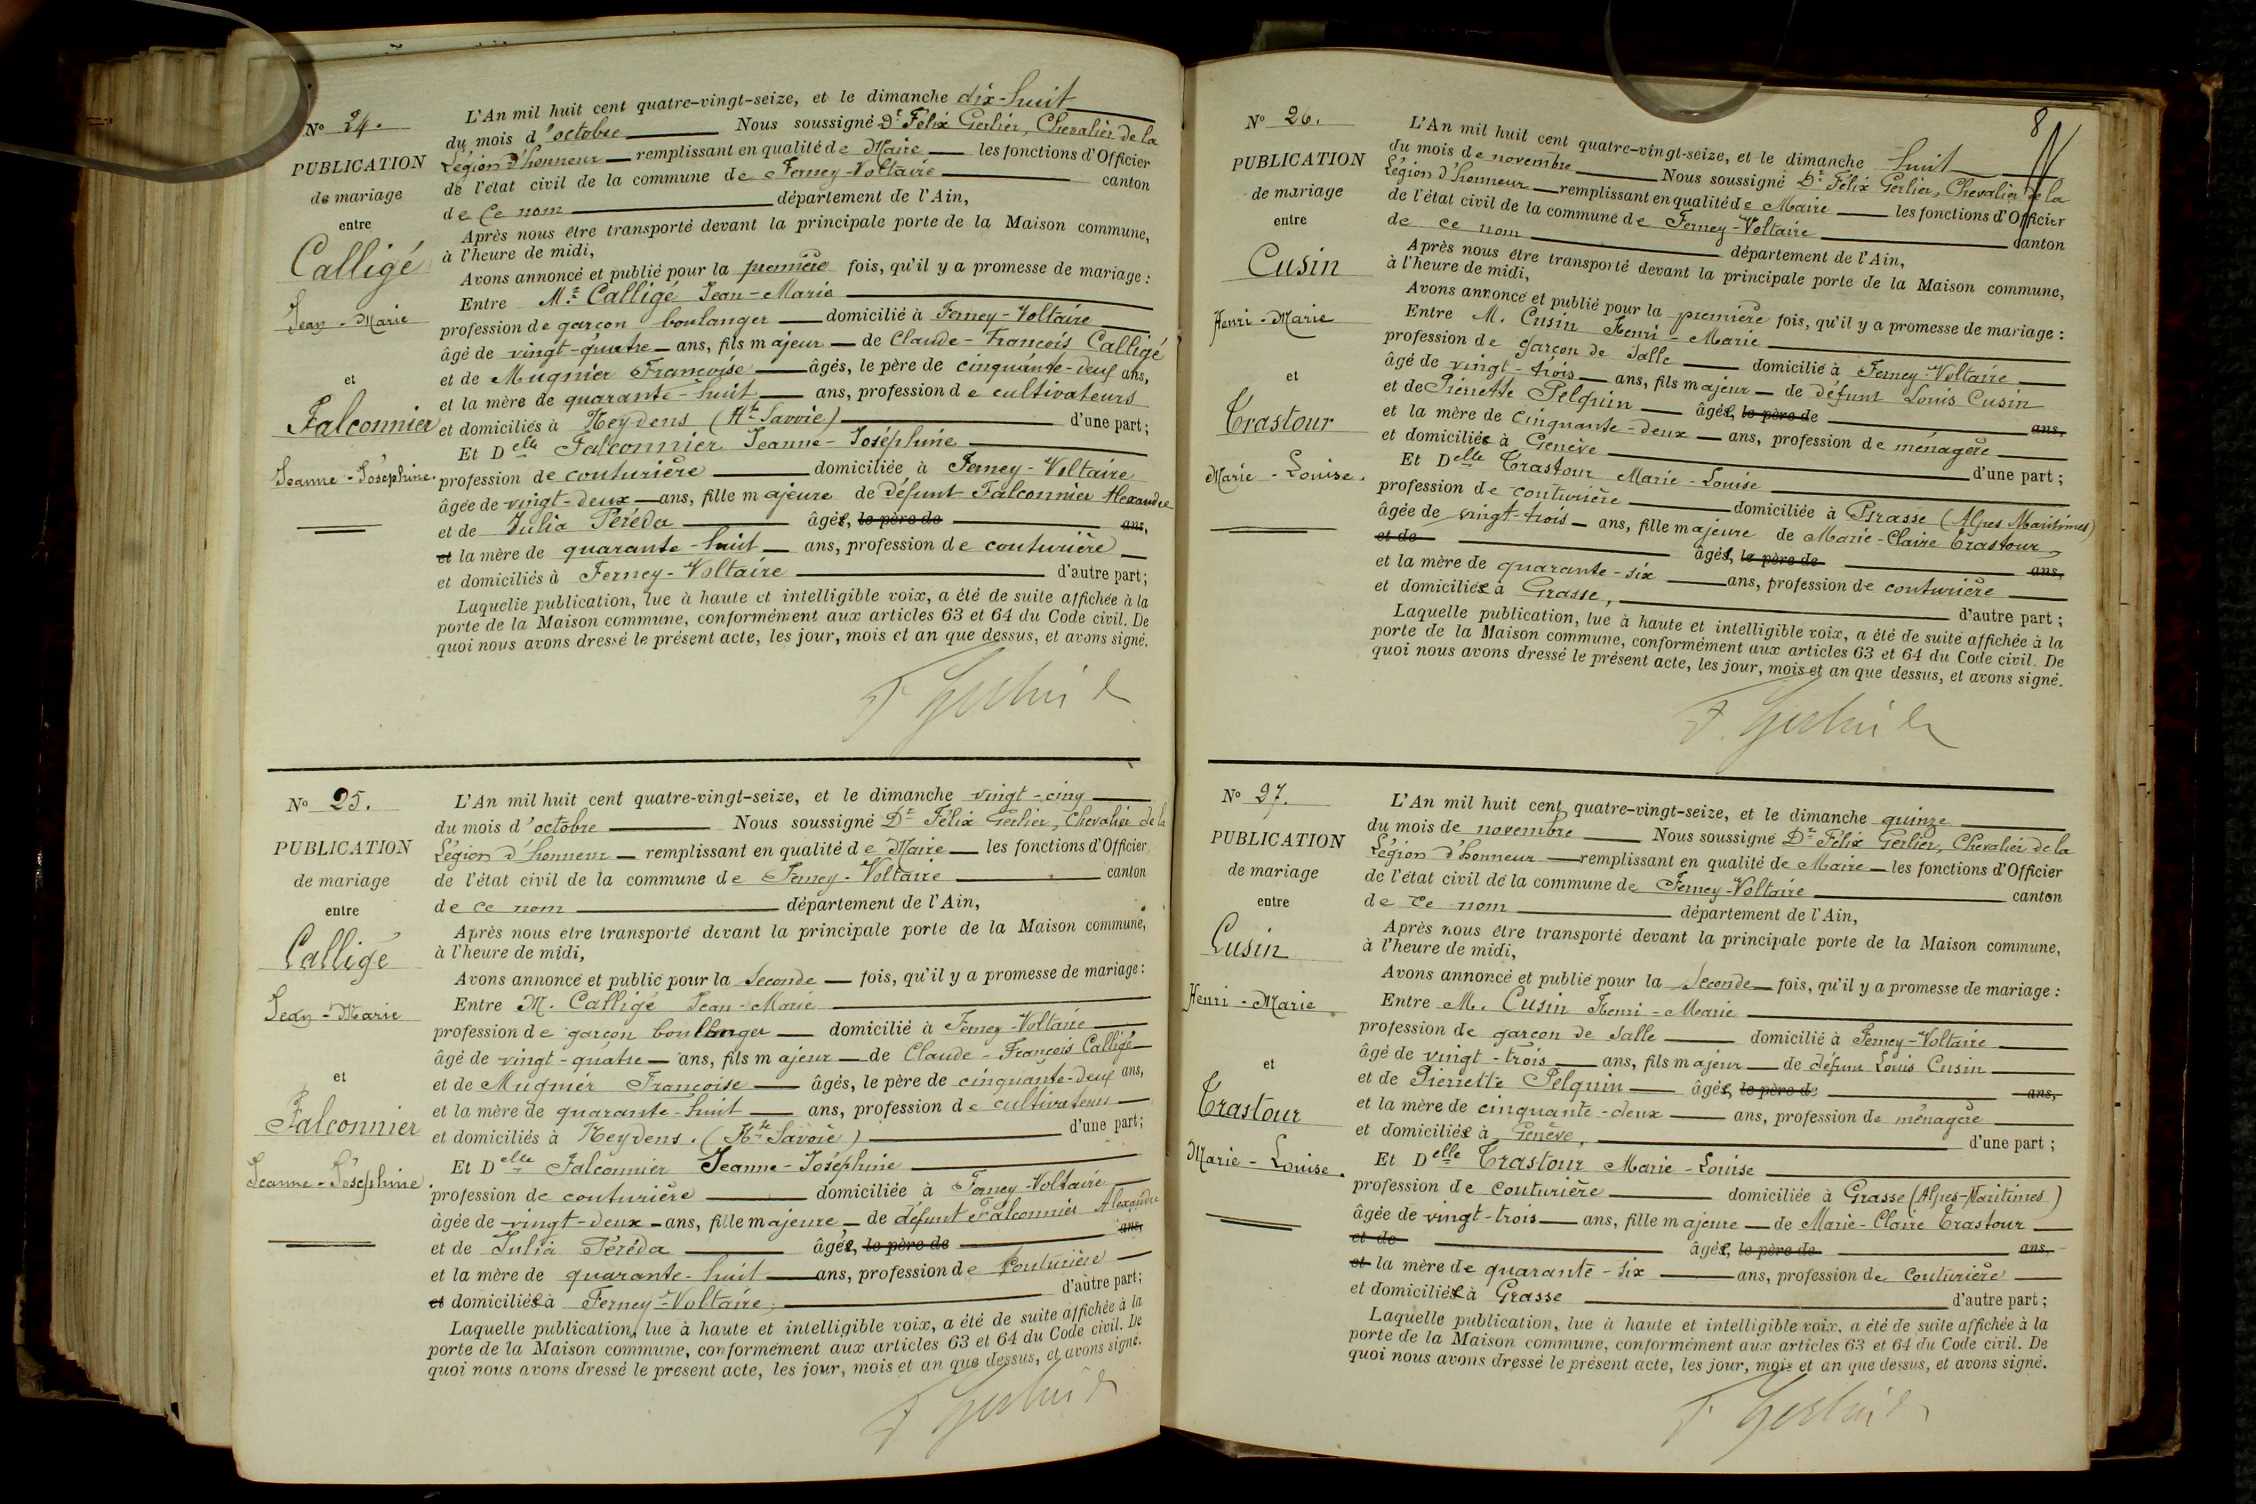 Nº 24.
PUBLICATION
de mariage
entre
Calligé
Jean-Marie
et
Falconnier
Jeanne-Joséphine.
L'An mil huit cent quatre-vingt-seize, et le dimanche dix-huit
du mois d'octobre Nous soussigné Dr Félix Gerlier, Chevalier de la
Légion d'honneur remplissant en qualité de Maire les fonctions d'Officier
de l'état civil de la commune de Ferney-Voltaire canton
de ce nom département de l'Ain,
Après nous être transporté devant la principale porte de la Maison commune,
à l'heure de midi,
Avons annoncé et publié pour la première fois, qu'il y a promesse de mariage :
Entre Mr. Calligé Jean-Marie
profession de garçon boulanger domicilié à Ferney-Voltaire
âgé de vingt-quatre ans, fils majeur de Claude-François Calligé
et de Mugnier Françoise âgés, le père de cinquante-deux ans,
et la mère de quarante-huit ans, profession de cultivateurs
et domiciliés à Neydens (Hte Savoie) d'une part;
Et Delle Falconnier Jeanne-Joséphine
profession de couturière domiciliée à Ferney-Voltaire
âgée de vingt-deux ans, fille majeure de défunt Falconnier Alexandre
et de Julia Péréda âgée, le père de ans,
et la mère de quarante-huit ans, profession de couturière
et domiciliés à Ferney-Voltaire d'autre part;
Laquelle publication, lue à haute et intelligible voix, a été de suite affichée à la
porte de la Maison commune, conformément aux articles 63 et 64 du Code civil. De
quoi nous avons dressé le présent acte, les jour, mois et an que dessus, et avons signé.
F Gerlier
Nº 25.
PUBLICATION
de mariage
entre
Calligé
Jean-Marie
et
Falconnier
Jeanne-Joséphine.
L'An mil huit cent quatre-vingt-seize, et le dimanche vingt-cinq
du mois d'octobre Nous soussigné Dr Félix Gerlier, Chevalier de la
Légion d'honneur remplissant en qualité de Maire les fonctions d'Officier
de l'état civil de la commune de Ferney-Voltaire canton
de ce nom département de l'Ain,
Après nous etre transporté devant la principale porte de la Maison commune,
à l'heure de midi,
Avons annoncé et publié pour la seconde fois, qu'il y a promesse de mariage :
Entre M. Calligé Jean-Marie
profession de garçon boulanger domicilié à Ferney-Voltaire
âgé de vingt-quatre ans, fils majeur de Claude-François Calligé
et de Mugnier Françoise âgés, le père de cinquante-deux ans,
et la mère de quarante-huit ans, profession de cultivateurs
et domiciliés à Neydens. (Hte Savoie) d'une part;
Et Delle Falconnier Jeanne-Joséphine
profession de couturière domiciliée à Ferney-Voltaire
âgée de vingt-deux ans, fille majeure de défunt Falconnier Alexandre
et de Julia Péréda âgée, le père de ans,
et la mère de quarante-huit ans, profession de Couturière
et domiciliée à Ferney-Voltaire, d'autre part;
Laquelle publication, lue à haute et intelligible voix, a été de suite affichée à la
porte de la Maison commune, conformément aux articles 63 et 64 du Code civil. De
quoi nous avons dressé le présent acte, les jour, mois et an que dessus, et avons signé.
F Gerlier
8
Nº 26.
PUBLICATION
de mariage
entre
Cusin
Henri-Marie
et
Trastour
Marie-Louise.
L'An mil huit cent quatre-vingt-seize, et le dimanche huit
du mois de novembre Nous soussigné Dr Félix Gerlier, Chevalier de la
Légion d'honneur remplissant en qualité de Maire les fonctions d'Officier
de l'état civil de la commune de Ferney-Voltaire canton
de ce nom département de l'Ain,
Après nous être transporté devant la principale porte de la Maison commune,
à l'heure de midi,
Avons annoncé et publié pour la première fois, qu'il y a promesse de mariage :
Entre M. Cusin Henri-Marie
profession de garçon de salle domicilié à Ferney-Voltaire
âgé de vingt-trois ans, fils majeur de défunt Louis Cusin
et de Pierrette Pelquin âgée, le père de ans,
et la mère de cinquante-deux ans, profession de ménagère
et domiciliée à Genève d'une part;
Et Delle Trastour Marie-Louise
profession de couturière domiciliée à Grasse (Alpes Maritimes)
âgée de vingt-trois ans, fille majeure de Marie-Claire Trastour,
et de âgée, le père de ans,
et la mère de quarante-six ans, profession de couturière
et domiciliée à Grasse, d'autre part;
Laquelle publication, lue à haute et intelligible voix, a été de suite affichée à la
porte de la Maison commune, conformément aux articles 63 et 64 du Code civil. De
quoi nous avons dressé le présent acte, les jour, mois et an que dessus, et avons signé.
F. Gerlier
Nº 27.
PUBLICATION
de mariage
entre
Cusin
Henri-Marie
et
Trastour
Marie-Louise.
L'An mil huit cent quatre-vingt-seize, et le dimanche quinze
du mois de novembre Nous soussigné Dr Félix Gerlier, Chevalier de la
Légion d'honneur remplissant en qualité de Maire les fonctions d'Officier
de l'état civil de la commune de Ferney-Voltaire canton
de ce nom département de l'Ain,
Après nous être transporté devant la principale porte de la Maison commune,
à l'heure de midi,
Avons annoncé et publié pour la seconde fois, qu'il y a promesse de mariage :
Entre M. Cusin Henri-Marie
profession de garçon de salle domicilié à Ferney-Voltaire
âgé de vingt-trois ans, fils majeur de défunt Louis Cusin
et de Pierrette Pelquin âgée, le père de ans,
et la mère de cinquante-deux ans, profession de ménagère
et domiciliée à Genève, d'une part;
Et Delle Trastour Marie-Louise
profession de couturière domiciliée à Grasse (Alpes-Maritimes)
âgée de vingt-trois ans, fille majeure de Marie-Claire Trastour
et de âgée, le père de ans,
et la mère de quarante-six ans, profession de couturière
et domiciliée à Grasse d'autre part;
Laquelle publication, lue à haute et intelligible voix, a été de suite affichée à la
porte de la Maison commune, conformément aux articles 63 et 64 du Code civil. De
quoi nous avons dressé le présent acte, les jour, mois et an que dessus, et avons signé.
F. Gerlier